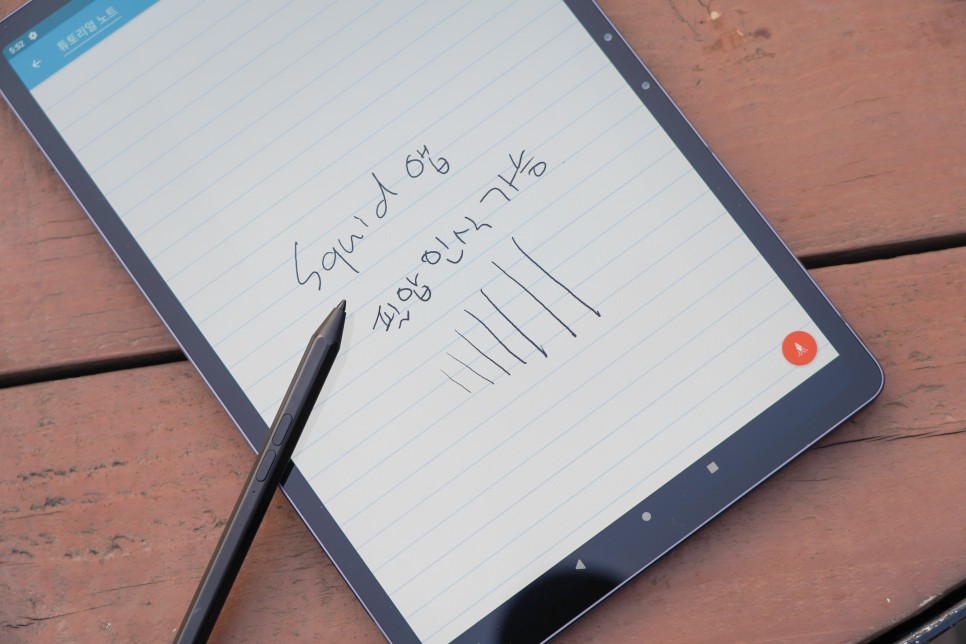 5:52
튜토리얼 노트
Squid 앱
필압 인식 가능